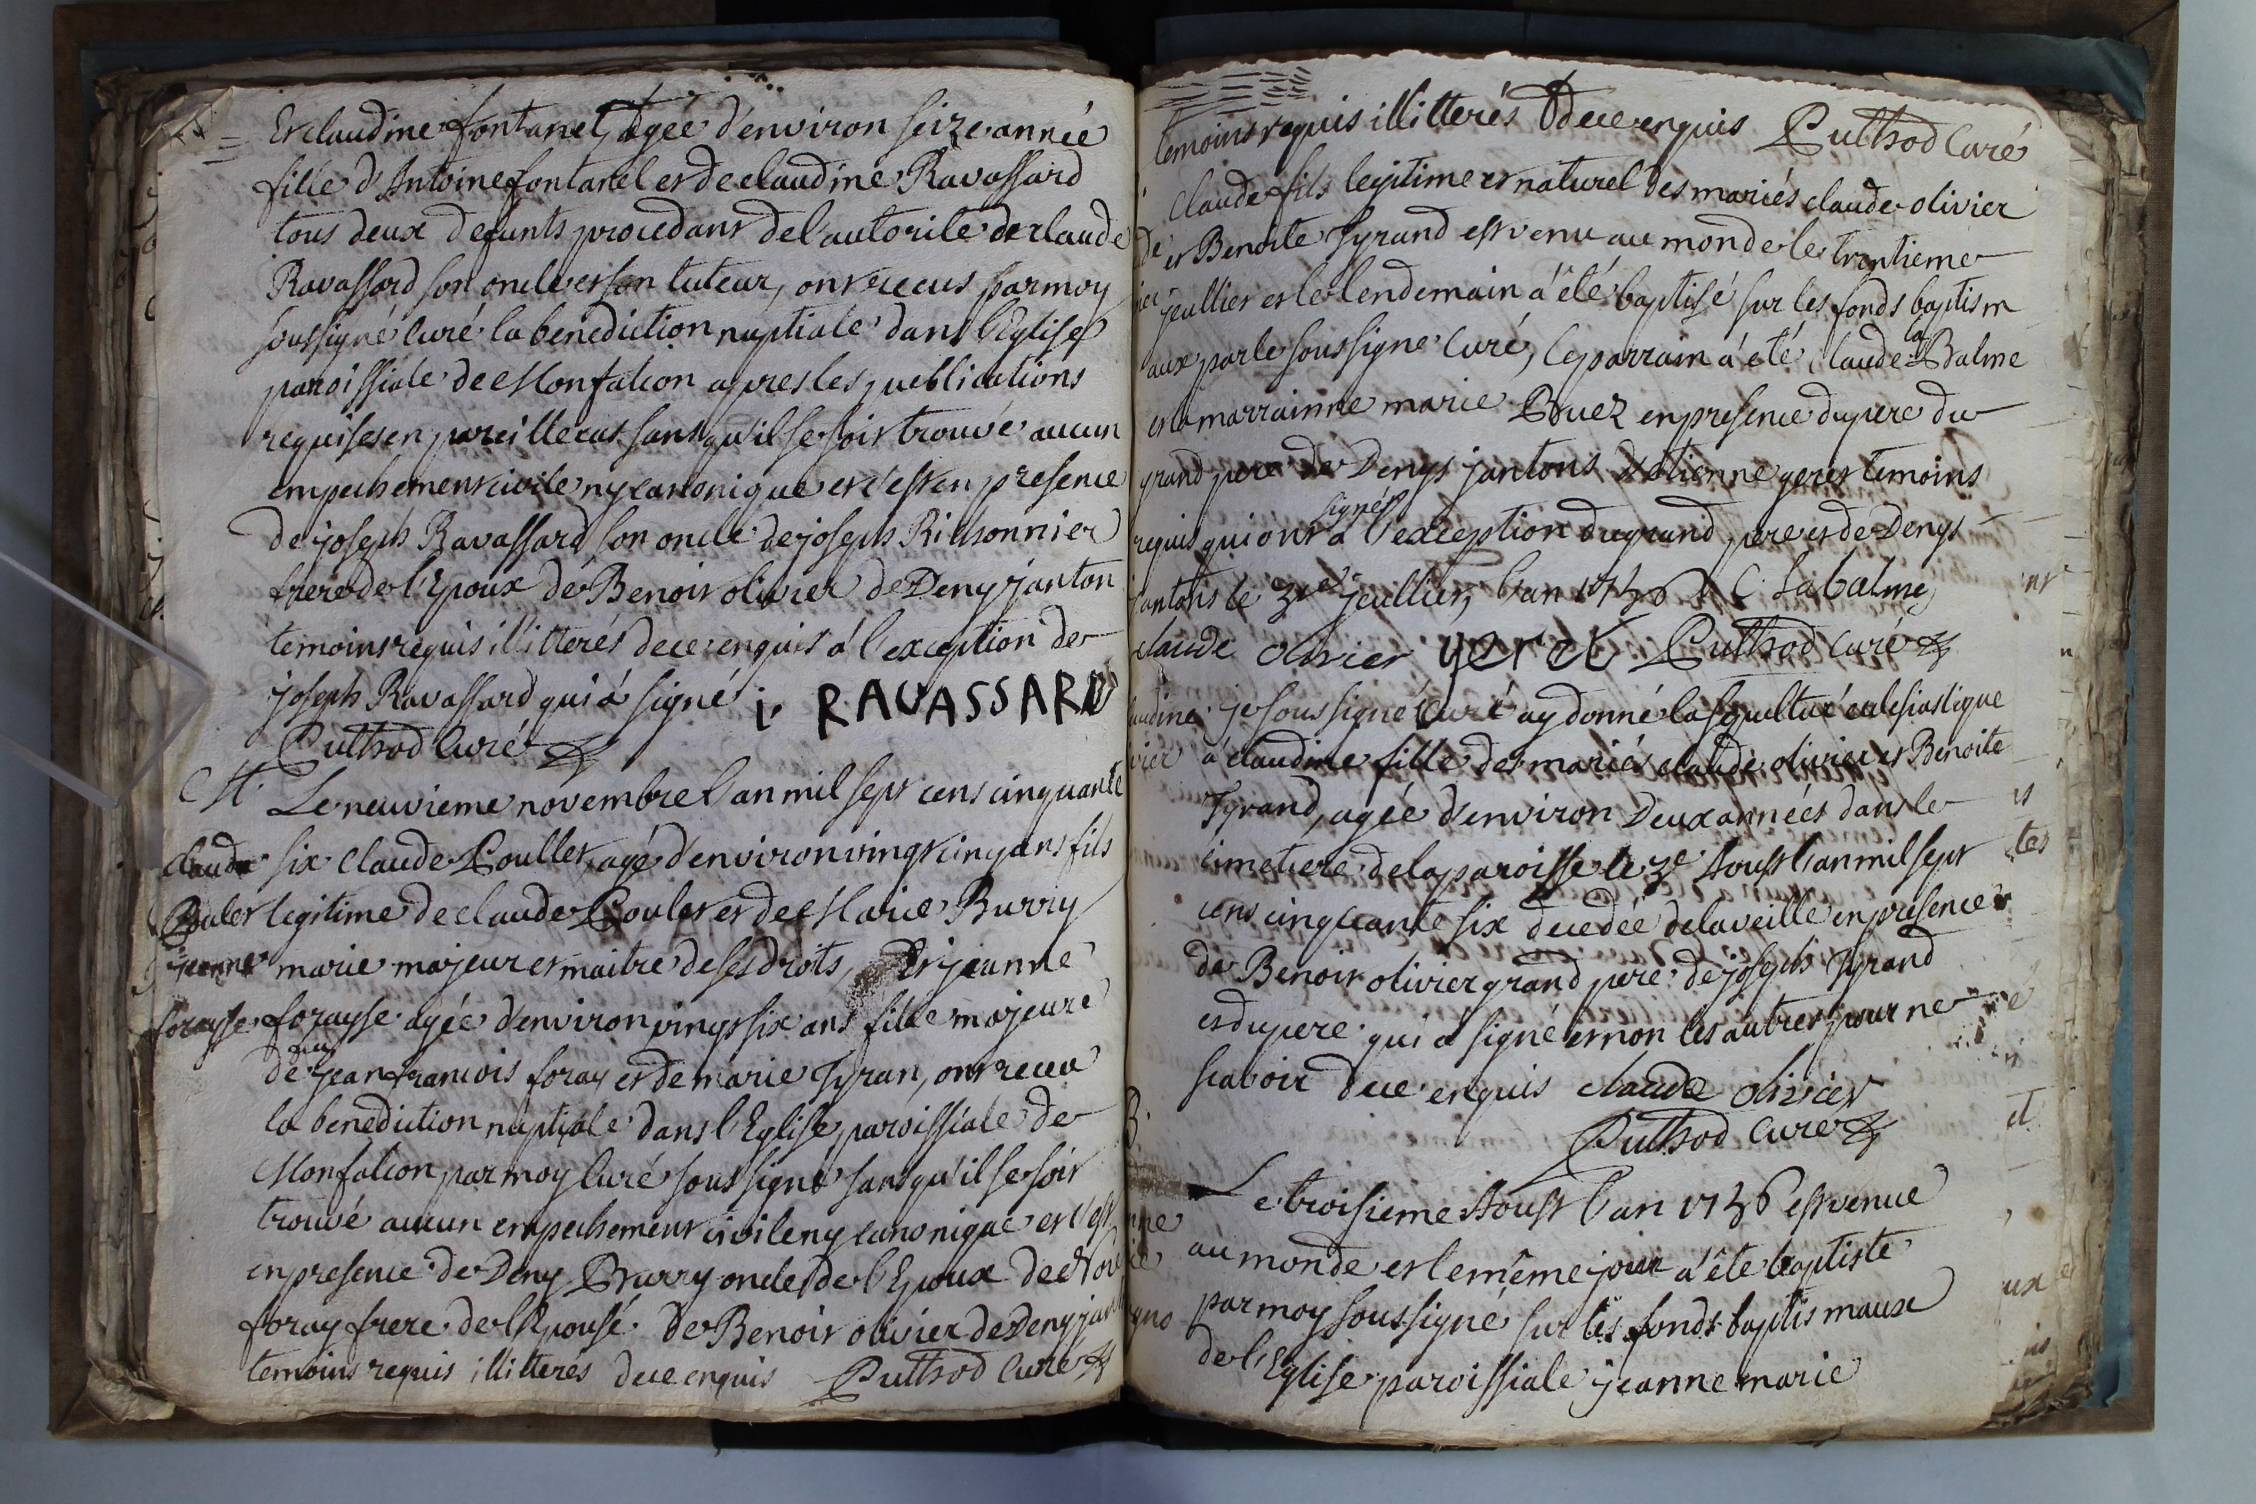 Et claudine fontanel, agée d'environ seize année
fille d'Antoine fontanel et de claudine Ravassard
tous deux defunts procedant de l'autorite de claude
Ravassard son oncle et son tuteur, ont recus par moy
soussigné Curé la benediction nuptiale dans l'Eglise
paroissiale de Monfalcon apres les publications
requises en pareille cas sans qu'il se soit trouvé aucun
empechement civile ny canonique et c'est en presence
de joseph Ravassard son oncle de joseph Richonnier
frere de l'Epoux de Benoit olivier de Deny janton
temoins requis illitterés de ce enquis á l'exception de
joseph Ravassard qui á signé i. RAVASSARD
Puthod Curé
M. Le neuvieme novembre l'an mil sept cens cinquante
claude six claude Poullet, agé d'environ vingt cinq ans fils
Poulet legitime de claude Poulet et de Marie Burry
jeanne marie majeur et maitre de ses droits, Et jeanne
forayse forayse agée d'environ vingt six ans fille majeure
feu
de jean francois foray et de marie Tyran, ont receu
la benediction nuptiale dans l'Eglise paroissiale de
Monfalcon par moy Curé soussigné sans qu'il se soit
trouvé aucun empechement civile ny canonique et c'est
en presence de Deny Burry oncle de l'Epoux de
foray frere de l'Epousé de Benoit olivier de Deny
temoins requis illitterés de ce enquis Puthod Curé
temoins requis illitterés de ce enquis Puthod Curé
claude fils legitime et naturel des mariés claude olivier
et Benoite Tyrand est venu au monde le trentieme
jeullier et le lendemain á été baptisé sur les fonds baptism
la
aux par le soussigné Curé, le parrain á été Claude Balme
et la marrainne marie en presence du pere du
grand pere de Denys jantons d'etienne yeret temoins
signés
requis qui ont á l'exception du grand pere et de Denys
jantons le jeullier, l'an 1756 C. labalme
claude olivier yeret Puthod Curé
je soussigné Curé ay donné la sepulture eclesiastique
á claudine fille des mariés claude olivier et Benoite
Tyrand, agée d'environ Deux années dans le
cimetiere de la paroisse le 3e Aoust l'an mil sept
cens cinquante six decedée de la veille en presence
de Benoit olivier grand pere de joseph Tyrand
et du pere qui á signé et non les autres pour ne
scavoir de ce enquis claude olivier
Puthod Curé
Le troisieme Aoust l'an 1756 est venue
au monde et le même jour á été baptiste
par moy soussigné sur les fonds baptismaux
de l'Eglise paroissiale jeanne marie